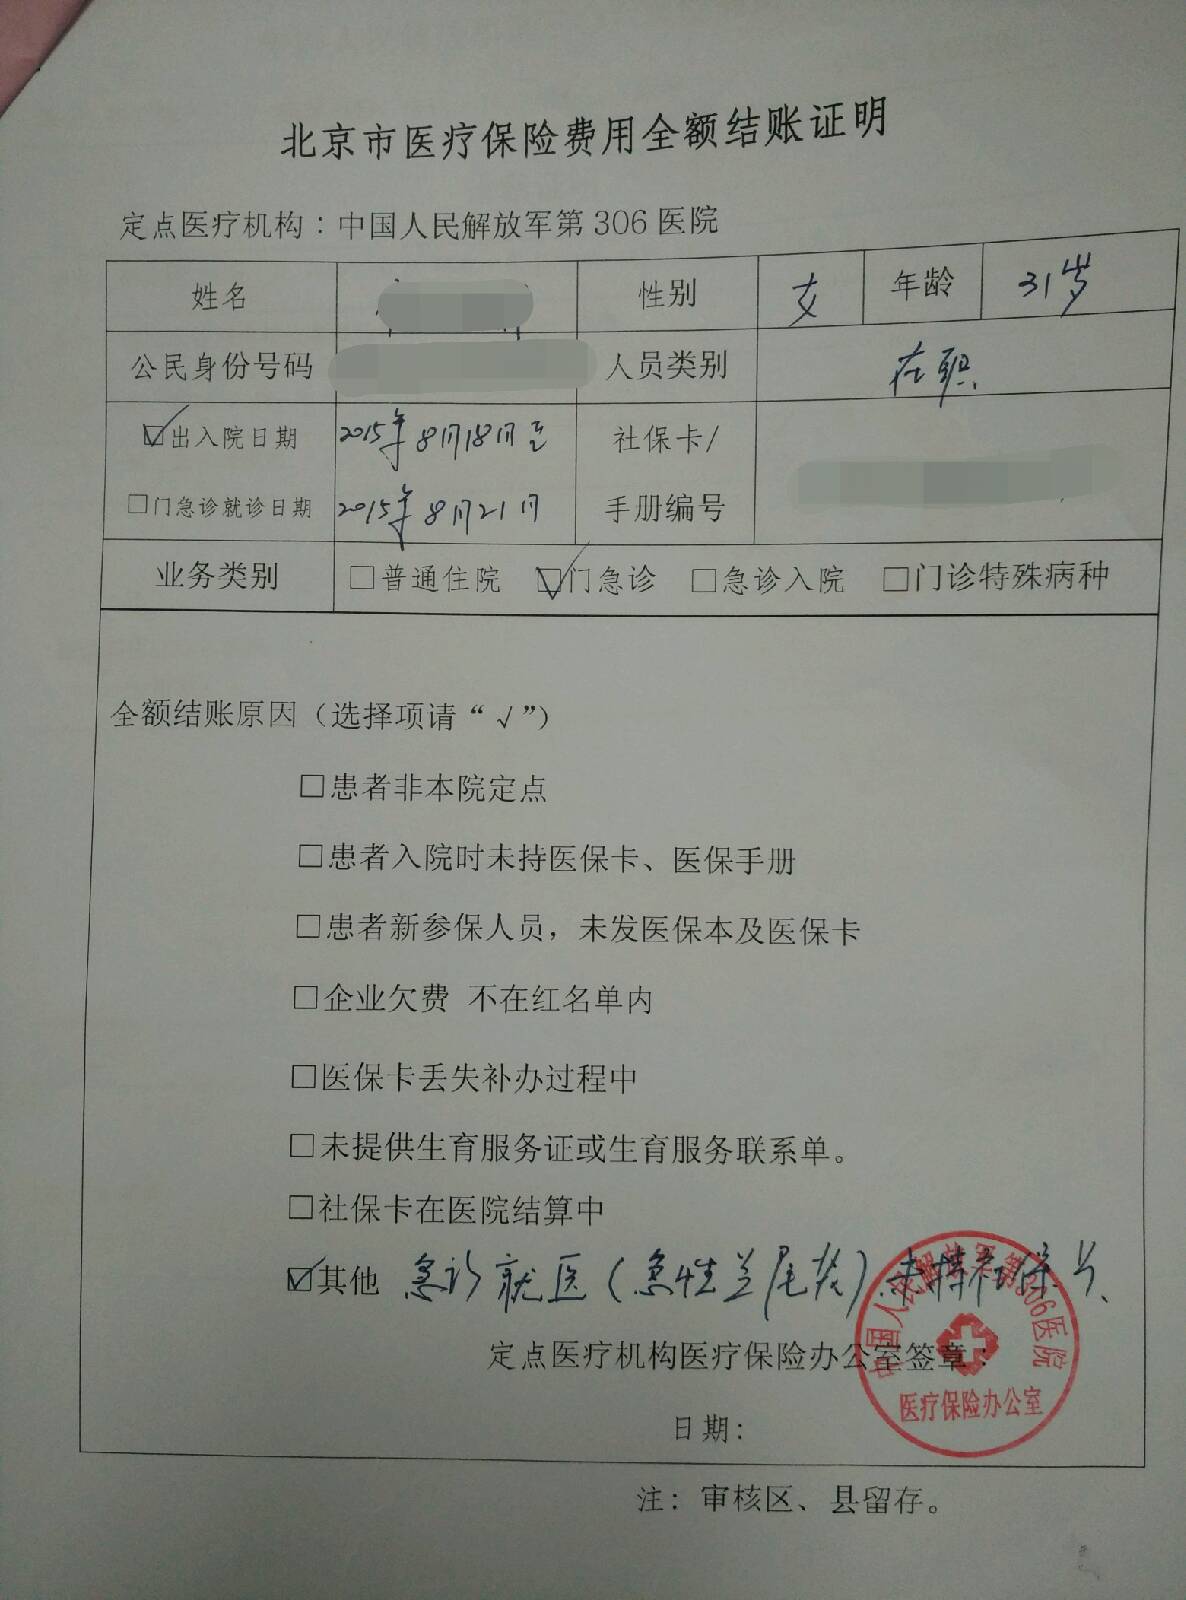 北京市医疗保险费用全额结账证明
定点医疗机构：中国人民解放军第306医院
姓名 性别 女 年龄 31岁
公民身份号码 人员类别 在职
☑出入院日期 2015年8月18日至 社保卡/
□门急诊就诊日期 2015年8月21日 手册编号
业务类别 □普通住院 ☑门急诊 □急诊入院 □门诊特殊病种
全额结账原因（选择项请“√”）
□患者非本院定点
□患者入院时未持医保卡、医保手册
□患者新参保人员，未发医保本及医保卡
□企业欠费 不在红名单内
□医保卡丢失补办过程中
□未提供生育服务证或生育服务联系单。
□社保卡在医院结算中
☑其他 急诊就医（急性兰尾炎）.未持社保卡、
定点医疗机构医疗保险办公室签章：
中国人民解放军第306医院
医疗保险办公室
日期：
注：审核区、县留存。